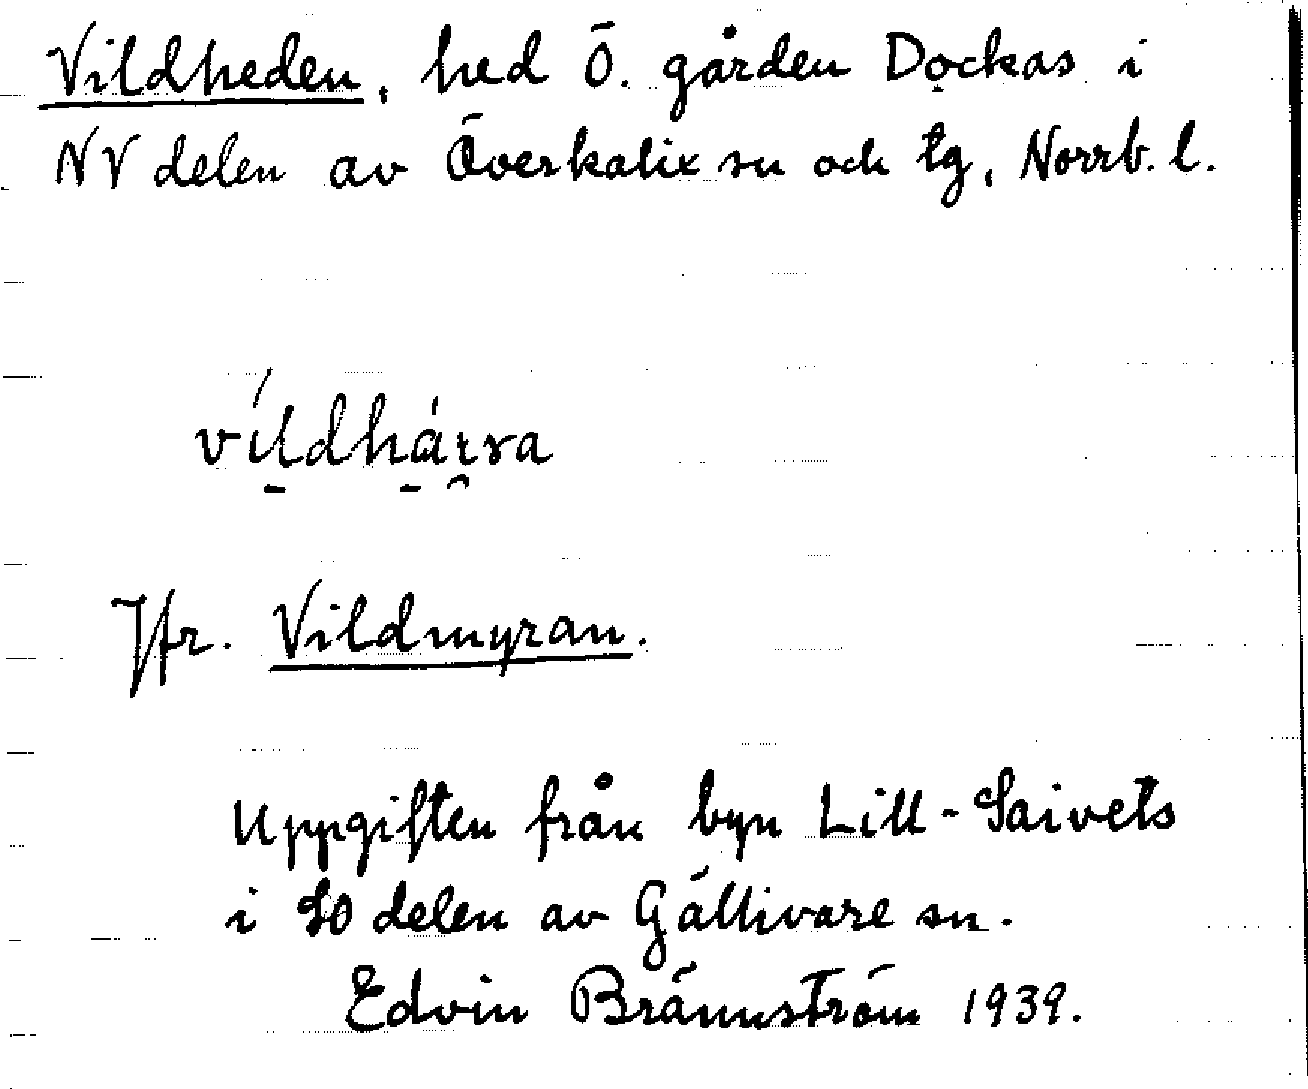 Vildheden, hed Ö. gården Dockas i
NV delen av Överkalix sn och tg, Norrb. l.
víldhá̱i̯sa
Jfr. Vildmyran.
Uppgiften från byn Lill-Saivets
i SO delen av Gällivare sn.
Edvin Brännström 1939.